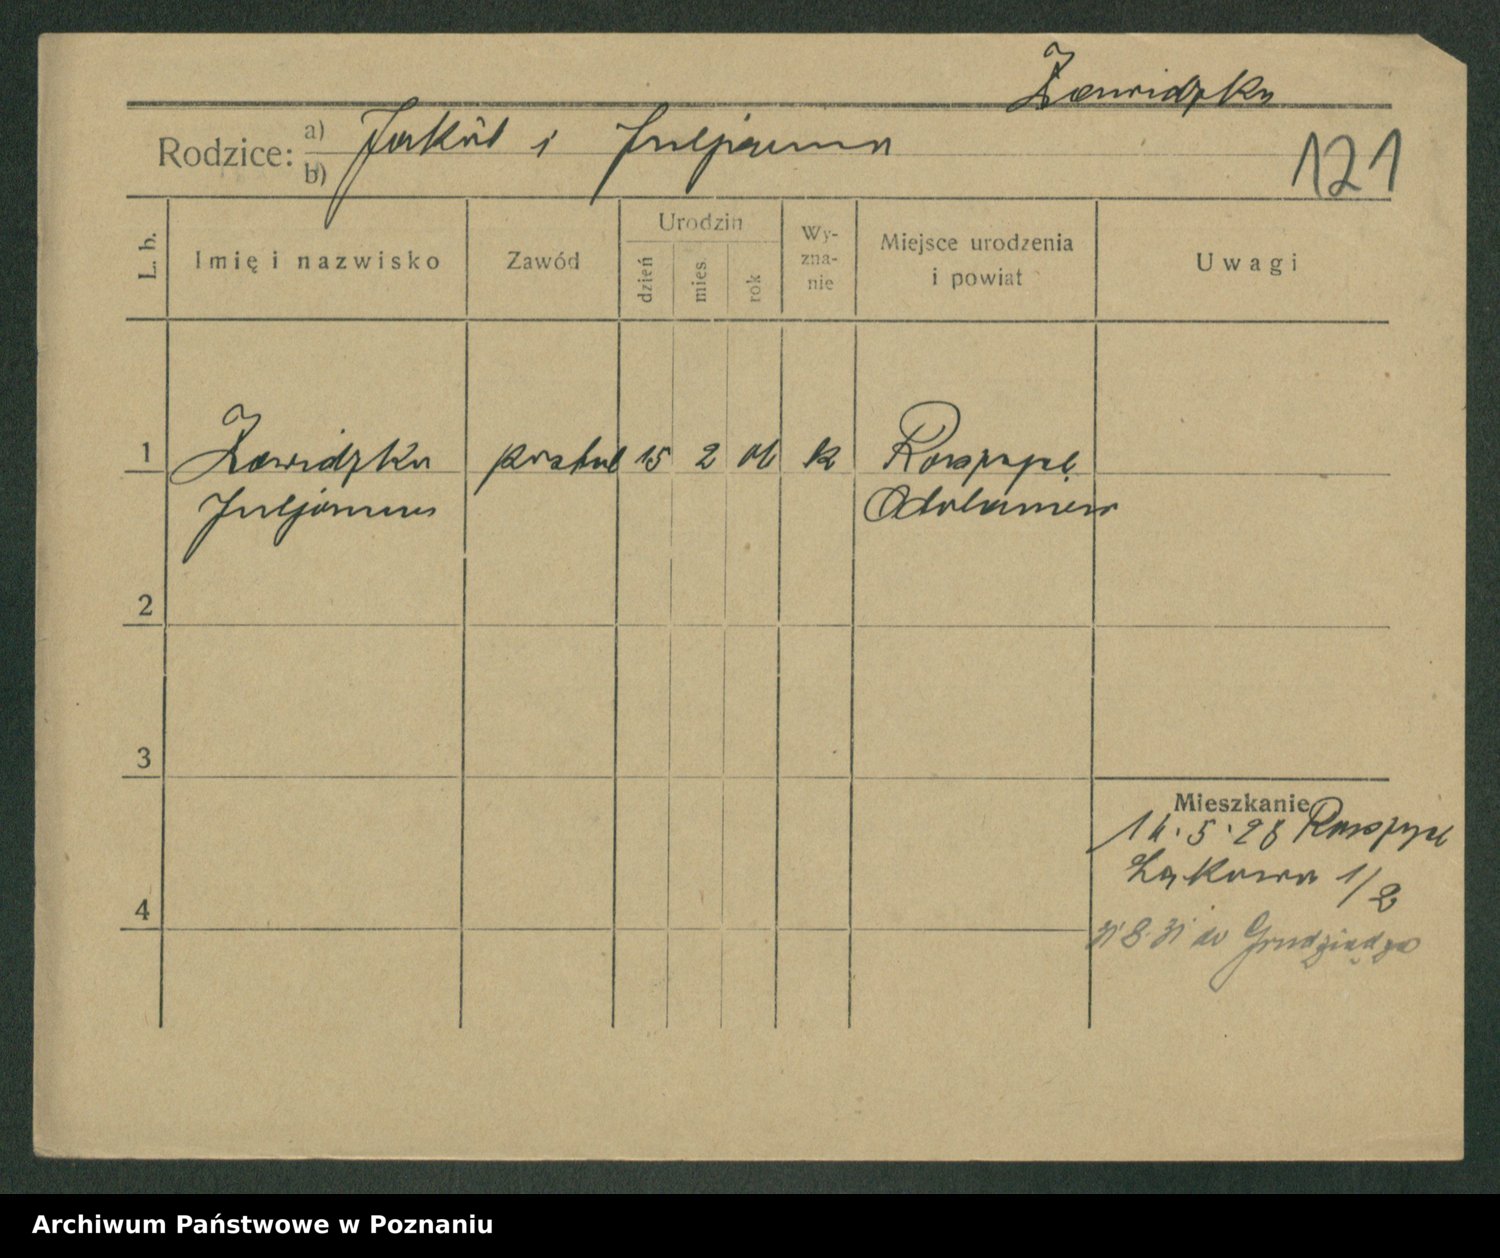 Zawidzka
Rodzice: a) Jakób i Juljanna
b)
121
L. b.
Imię i nazwisko
Zawód
Urodzin
dzień
mies.
rok
Wy-
zna-
nie
Miejsce urodzenia
i powiat
Uwagi
1
Zawidzka
Juljanna
15 2 06 k
Raszyce
Odolanów
2
3
4
Mieszkanie
14.5.28
Łąkowa 1/2
31 8. 31 do Grudziądza
Archiwum Państwowe w Poznaniu